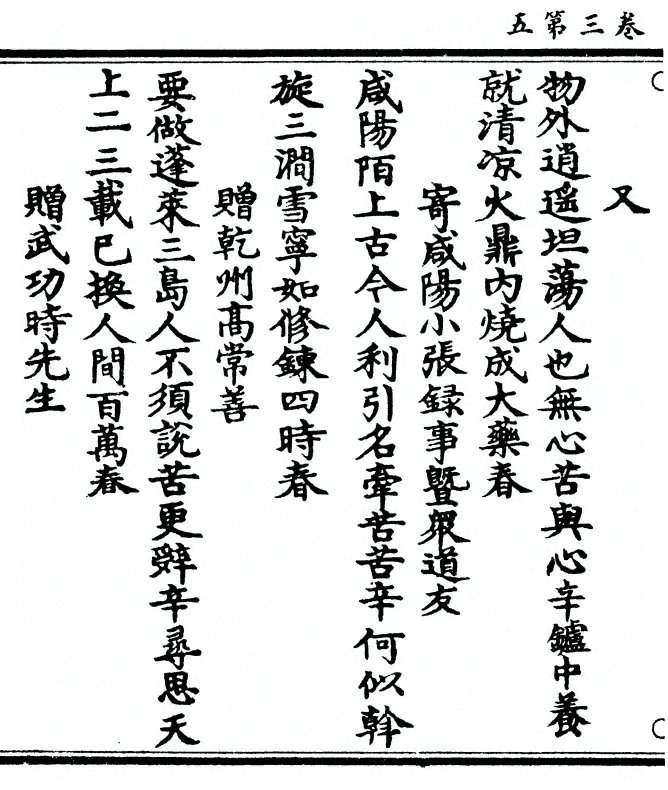 五第三卷
又
物外逍遥坦蕩人也無心苦與心辛鑪中養
就清凉火鼎内燒成大藥春
寄咸陽小張録事暨衆道友
咸陽陌上古今人利引名牽苦苦辛何似斡
旋三澗雪寧如修鍊四時春
贈乾州髙常善
要做蓬萊三島人不須說苦更辭辛尋思天
上二三載已換人間百萬春
贈武功時先生